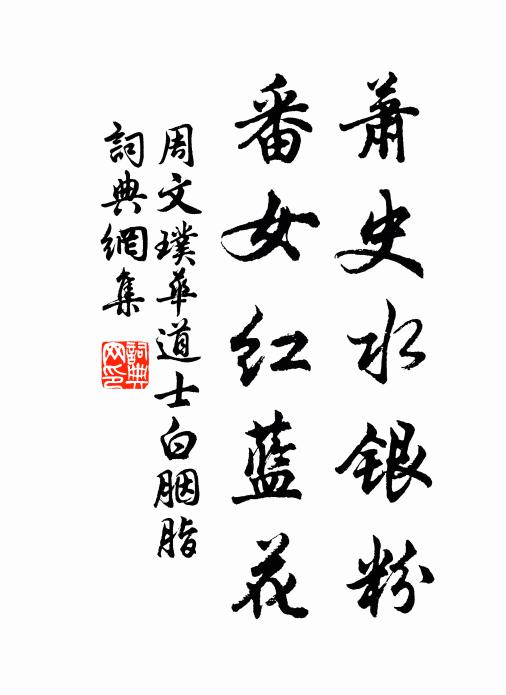 蕭史水銀粉
番女红藍花
周文璞華道士白胭脂
詞典網集
詞典网印